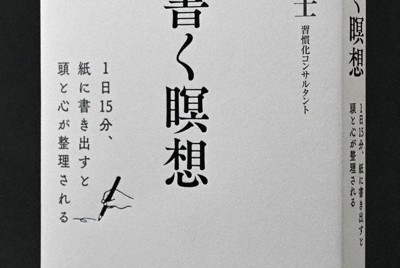 士
習慣化コンサルタント
書く瞑想
1日15分、
紙に書き出すと
頭と心が整理される
く瞑想
1日15分、紙に書き出すと
頭と心が整理される